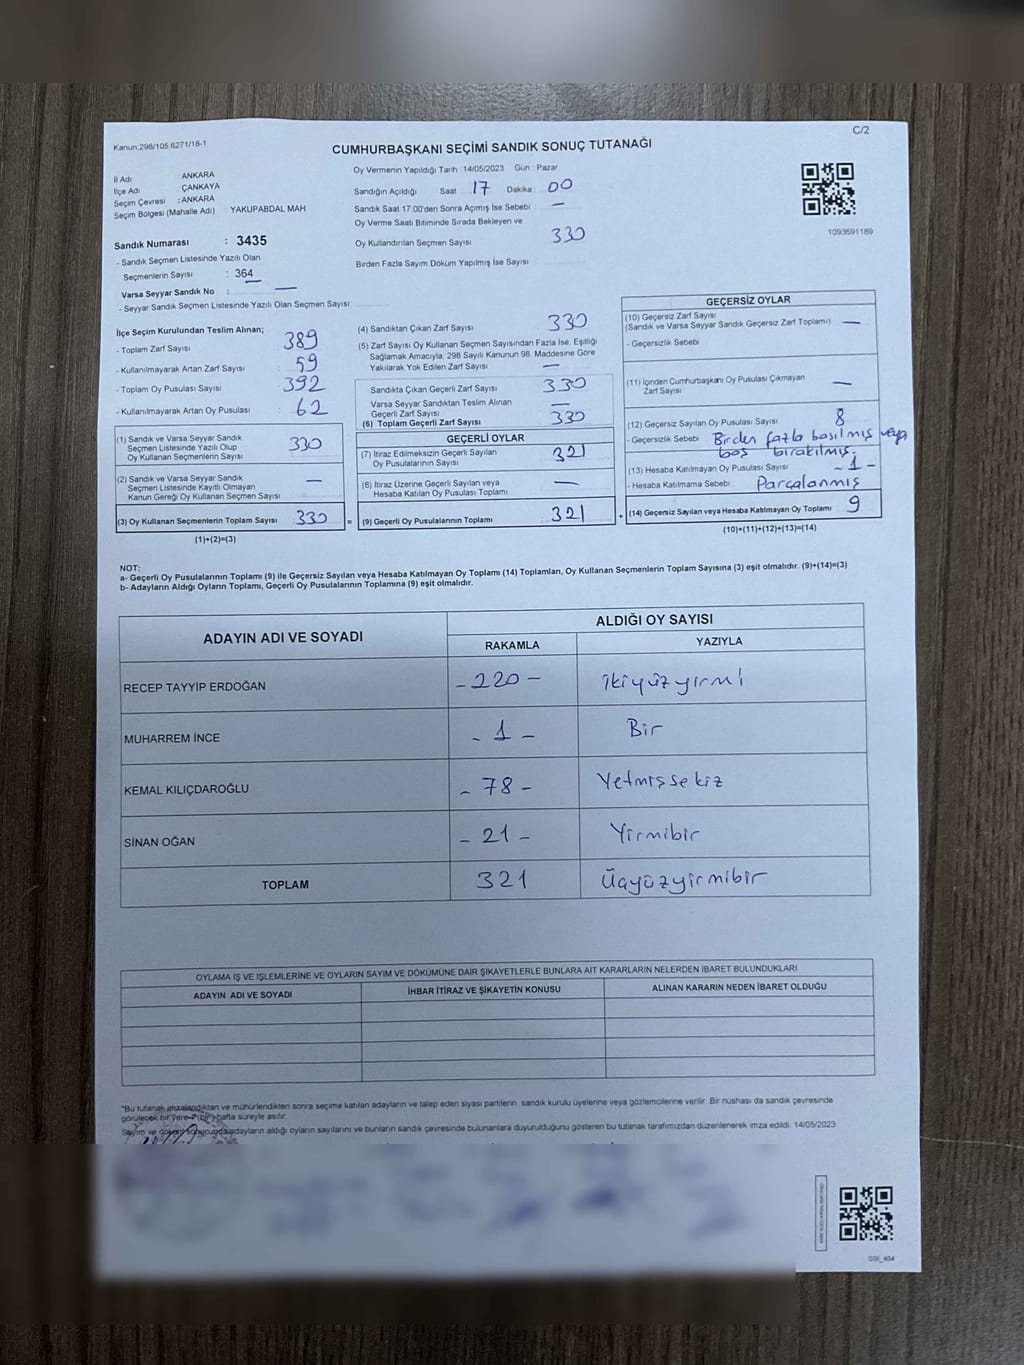 C/2
Kanun;298/105.6271/18-1
CUMHURBAŞKANI SEÇİMİ SANDIK SONUÇ TUTANAĞI
İl Adı ANKARA
İlçe Adı ÇANKAYA
Seçim Çevresi : ANKARA
Seçim Bölgesi (Mahalle Adı) : YAKUPABDAL MAH
Sandık Numarası : 3435
- Sandık Seçmen Listesinde Yazılı Olan
Seçmenlerin Sayısı : 364
Varsa Seyyar Sandık No : —
- Seyyar Sandık Seçmen Listesinde Yazılı Olan Seçmen Sayısı:
Oy Vermenin Yapıldığı Tarih 14/05/2023 Gün : Pazar
Sandığın Açıldığı Saat 17 Dakika : 00
Sandık Saat 17.00'den Sonra Açımış İse Sebebi : —
Oy Verme Saati Bitiminde Sırada Bekleyen ve
Oy Kullandırılan Seçmen Sayısı 330
Birden Fazla Sayım Döküm Yapılmış İse Sayısı
1093691189
İlçe Seçim Kurulundan Teslim Alınan;
- Toplam Zarf Sayısı : 389
- Kullanılmayarak Artan Zarf Sayısı : 59
- Toplam Oy Pusulası Sayısı : 392
- Kullanılmayarak Artan Oy Pusulası : 62
(1) Sandık ve Varsa Seyyar Sandık
Seçmen Listesinde Yazılı Olup
Oy Kullanan Seçmenlerin Sayısı 330
(2) Sandık ve Varsa Seyyar Sandık
Seçmen Listesinde Kayıtlı Olmayan
Kanun Gereği Oy Kullanan Seçmen Sayısı —
(3) Oy Kullanan Seçmenlerin Toplam Sayısı 330
(1)+(2)=(3)
(4) Sandıktan Çıkan Zarf Sayısı 330
(5) Zarf Sayısı Oy Kullanan Seçmen Sayısından Fazla İse, Eşitliği
Sağlamak Amacıyla, 298 Sayılı Kanunun 98. Maddesine Göre
Yakılarak Yok Edilen Zarf Sayısı —
Sandıkta Çıkan Geçerli Zarf Sayısı 330
Varsa Seyyar Sandıktan Teslim Alınan
Geçerli Zarf Sayısı —
(6) Toplam Geçerli Zarf Sayısı 330
GEÇERLİ OYLAR
(7) İtiraz Edilmeksizin Geçerli Sayılan
Oy Pusulalarının Sayısı 321
(8) İtiraz Üzerine Geçerli Sayılan veya
Hesaba Katılan Oy Pusulası Toplamı —
= (9) Geçerli Oy Pusulalarının Toplamı 321 +
GEÇERSİZ OYLAR
(10) Geçersiz Zarf Sayısı
(Sandık ve Varsa Seyyar Sandık Geçersiz Zarf Toplamı) —
- Geçersizlik Sebebi
(11) İçinden Cumhurbaşkanı Oy Pusulası Çıkmayan
Zarf Sayısı —
(12) Geçersiz Sayılan Oy Pusulası Sayısı 8
- Geçersizlik Sebebi Birden fazla basılmış veya
boş bırakılmış.
(13) Hesaba Katılmayan Oy Pusulası Sayısı - 1 -
- Hesaba Katılmama Sebebi Parçalanmış
(14) Geçersiz Sayılan veya Hesaba Katılmayan Oy Toplamı 9
(10)+(11)+(12)+(13)=(14)
NOT:
a- Geçerli Oy Pusulalarının Toplamı (9) ile Geçersiz Sayılan veya Hesaba Katılmayan Oy Toplamı (14) Toplamları, Oy Kullanan Seçmenlerin Toplam Sayısına (3) eşit olmalıdır. (9)+(14)=(3)
b- Adayların Aldığı Oyların Toplamı, Geçerli Oy Pusulalarının Toplamına (9) eşit olmalıdır.
ADAYIN ADI VE SOYADI
ALDIĞI OY SAYISI
RAKAMLA YAZIYLA
RECEP TAYYİP ERDOĞAN - 220 - ikiyüzyirmi
MUHARREM İNCE - 1 - Bir
KEMAL KILIÇDAROĞLU - 78 - Yetmişsekiz
SİNAN OĞAN - 21 - Yirmibir
TOPLAM 321 Üçyüzyirmibir
OYLAMA İŞ VE İŞLEMLERİNE VE OYLARIN SAYIM VE DÖKÜMÜNE DAİR ŞİKAYETLERLE BUNLARA AİT KARARLARIN NELERDEN İBARET BULUNDUKLARI
ADAYIN ADI VE SOYADI İHBAR İTİRAZ VE ŞİKAYETİN KONUSU ALINAN KARARIN NEDEN İBARET OLDUĞU
*Bu tutanak imzalandıktan ve mühürlendikten sonra seçime katılan adayların ve talep eden siyasi partilerin, sandık kurulu üyelerine veya gözlemcilerine verilir. Bir nüshası da sandık çevresinde
görülecek bir yere (bir) hafta süreyle asılır.
Sayım ve döküm sonucunda adayların aldığı oyların sayılarını ve bunların sandık çevresinde bulunanlara duyurulduğunu gösteren bu tutanak tarafımızdan düzenlenerek imza edildi. 14/05/2023
GSI_464